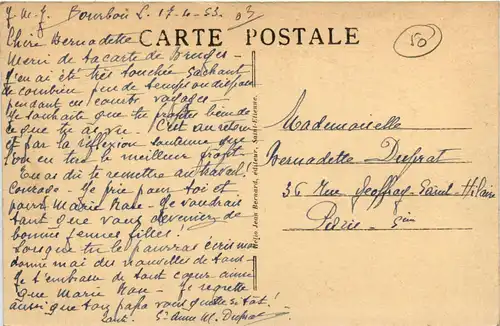 J. M. J. Bourbon L. 17-4-53.
CARTE POSTALE
50
Chère Bernadette
Merci de ta carte de Bruges -
J'en ai été très touchée sachant
de combien peu de temps on dispose
pendant ces courts voyages -
Je souhaite que tu profites bien de
ce que tu as vu. C'est au retour
et par la réflexion
l'on en tire le meilleur profit.
Tu as dû te remettre au travail!
Courage - Je prie pour toi et
pour Marie Rose - Je voudrais
tant que vous deveniez de
bonnes jeunes filles!
Lorsque tu le pourras écris moi
donne moi des nouvelles de tous -
Je t'embrasse de tout cœur ainsi
que Marie Rose - Je regrette
aussi que ton papa vous quitte si tôt!
Tante Sr Anne M. Duprat
Hélio Jean Bernard, éditeur, Saint-Etienne.
Mademoiselle
Bernadette Duprat
36 Rue Geoffroy-Saint-Hilaire
Paris - 5èm